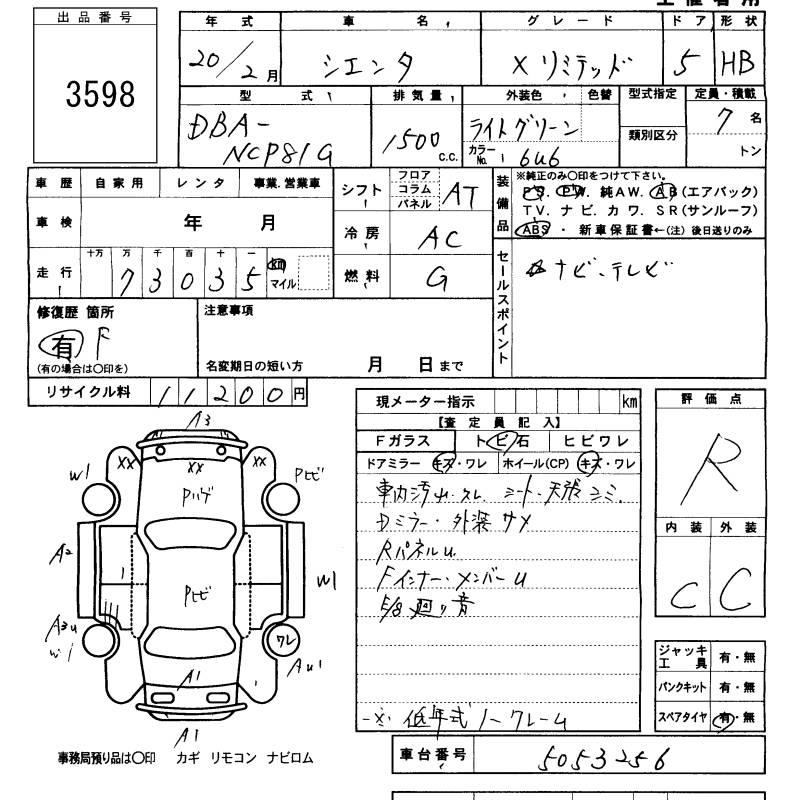 出品番号
3598
年式 車名 グレード ドア 形状
20/2月 シエンタ X リミテッド 5 HB
型式 排気量 外装色 色替 型式指定 定員・積載
DBA-NCP81G 1500c.c. ライトグリーン 7名
カラーNo. 6U6 類別区分 トン
車歴 自家用 レンタ 事業.営業車 シフト フロア コラム パネル AT
装備品 ※純正のみ〇印をつけて下さい。
PS. PW. 純AW. AB(エアバック)
TV. ナビ. カワ. SR(サンルーフ)
ABS ・ 新車保証書←(注) 後日送りのみ
車検 年 月 冷房 AC
走行 十万 万 千 百 十 一
73035 km マイル 燃料 G
セールスポイント ナビ、テレビ
修復歴 箇所 注意事項
有 F
(有の場合は〇印を) 名変期日の短い方 月 日まで
リサイクル料 11200円
現メーター指示 km
【査定員記入】
Fガラス トビ石 ヒビワレ
ドアミラー キズ・ワレ ホイール(CP) キズ・ワレ
車内汚 シート・天張シミ.
Dミラー・外装サメ
RパネルU.
Fインナー・メンバーU
廻り音
低年式 ノークレーム
評価点
R
内装 外装
C C
ジャッキ工具 有・無
パンクキット 有・無
スペアタイヤ 有・無
車台番号 5053256
A3
XX XX XX
W1 Pハゲ Pヒビ
A2 Pヒビ W1
A3U W1 ワレ AU1
A1
A1
事務局預り品は〇印 カギ リモコン ナビロム